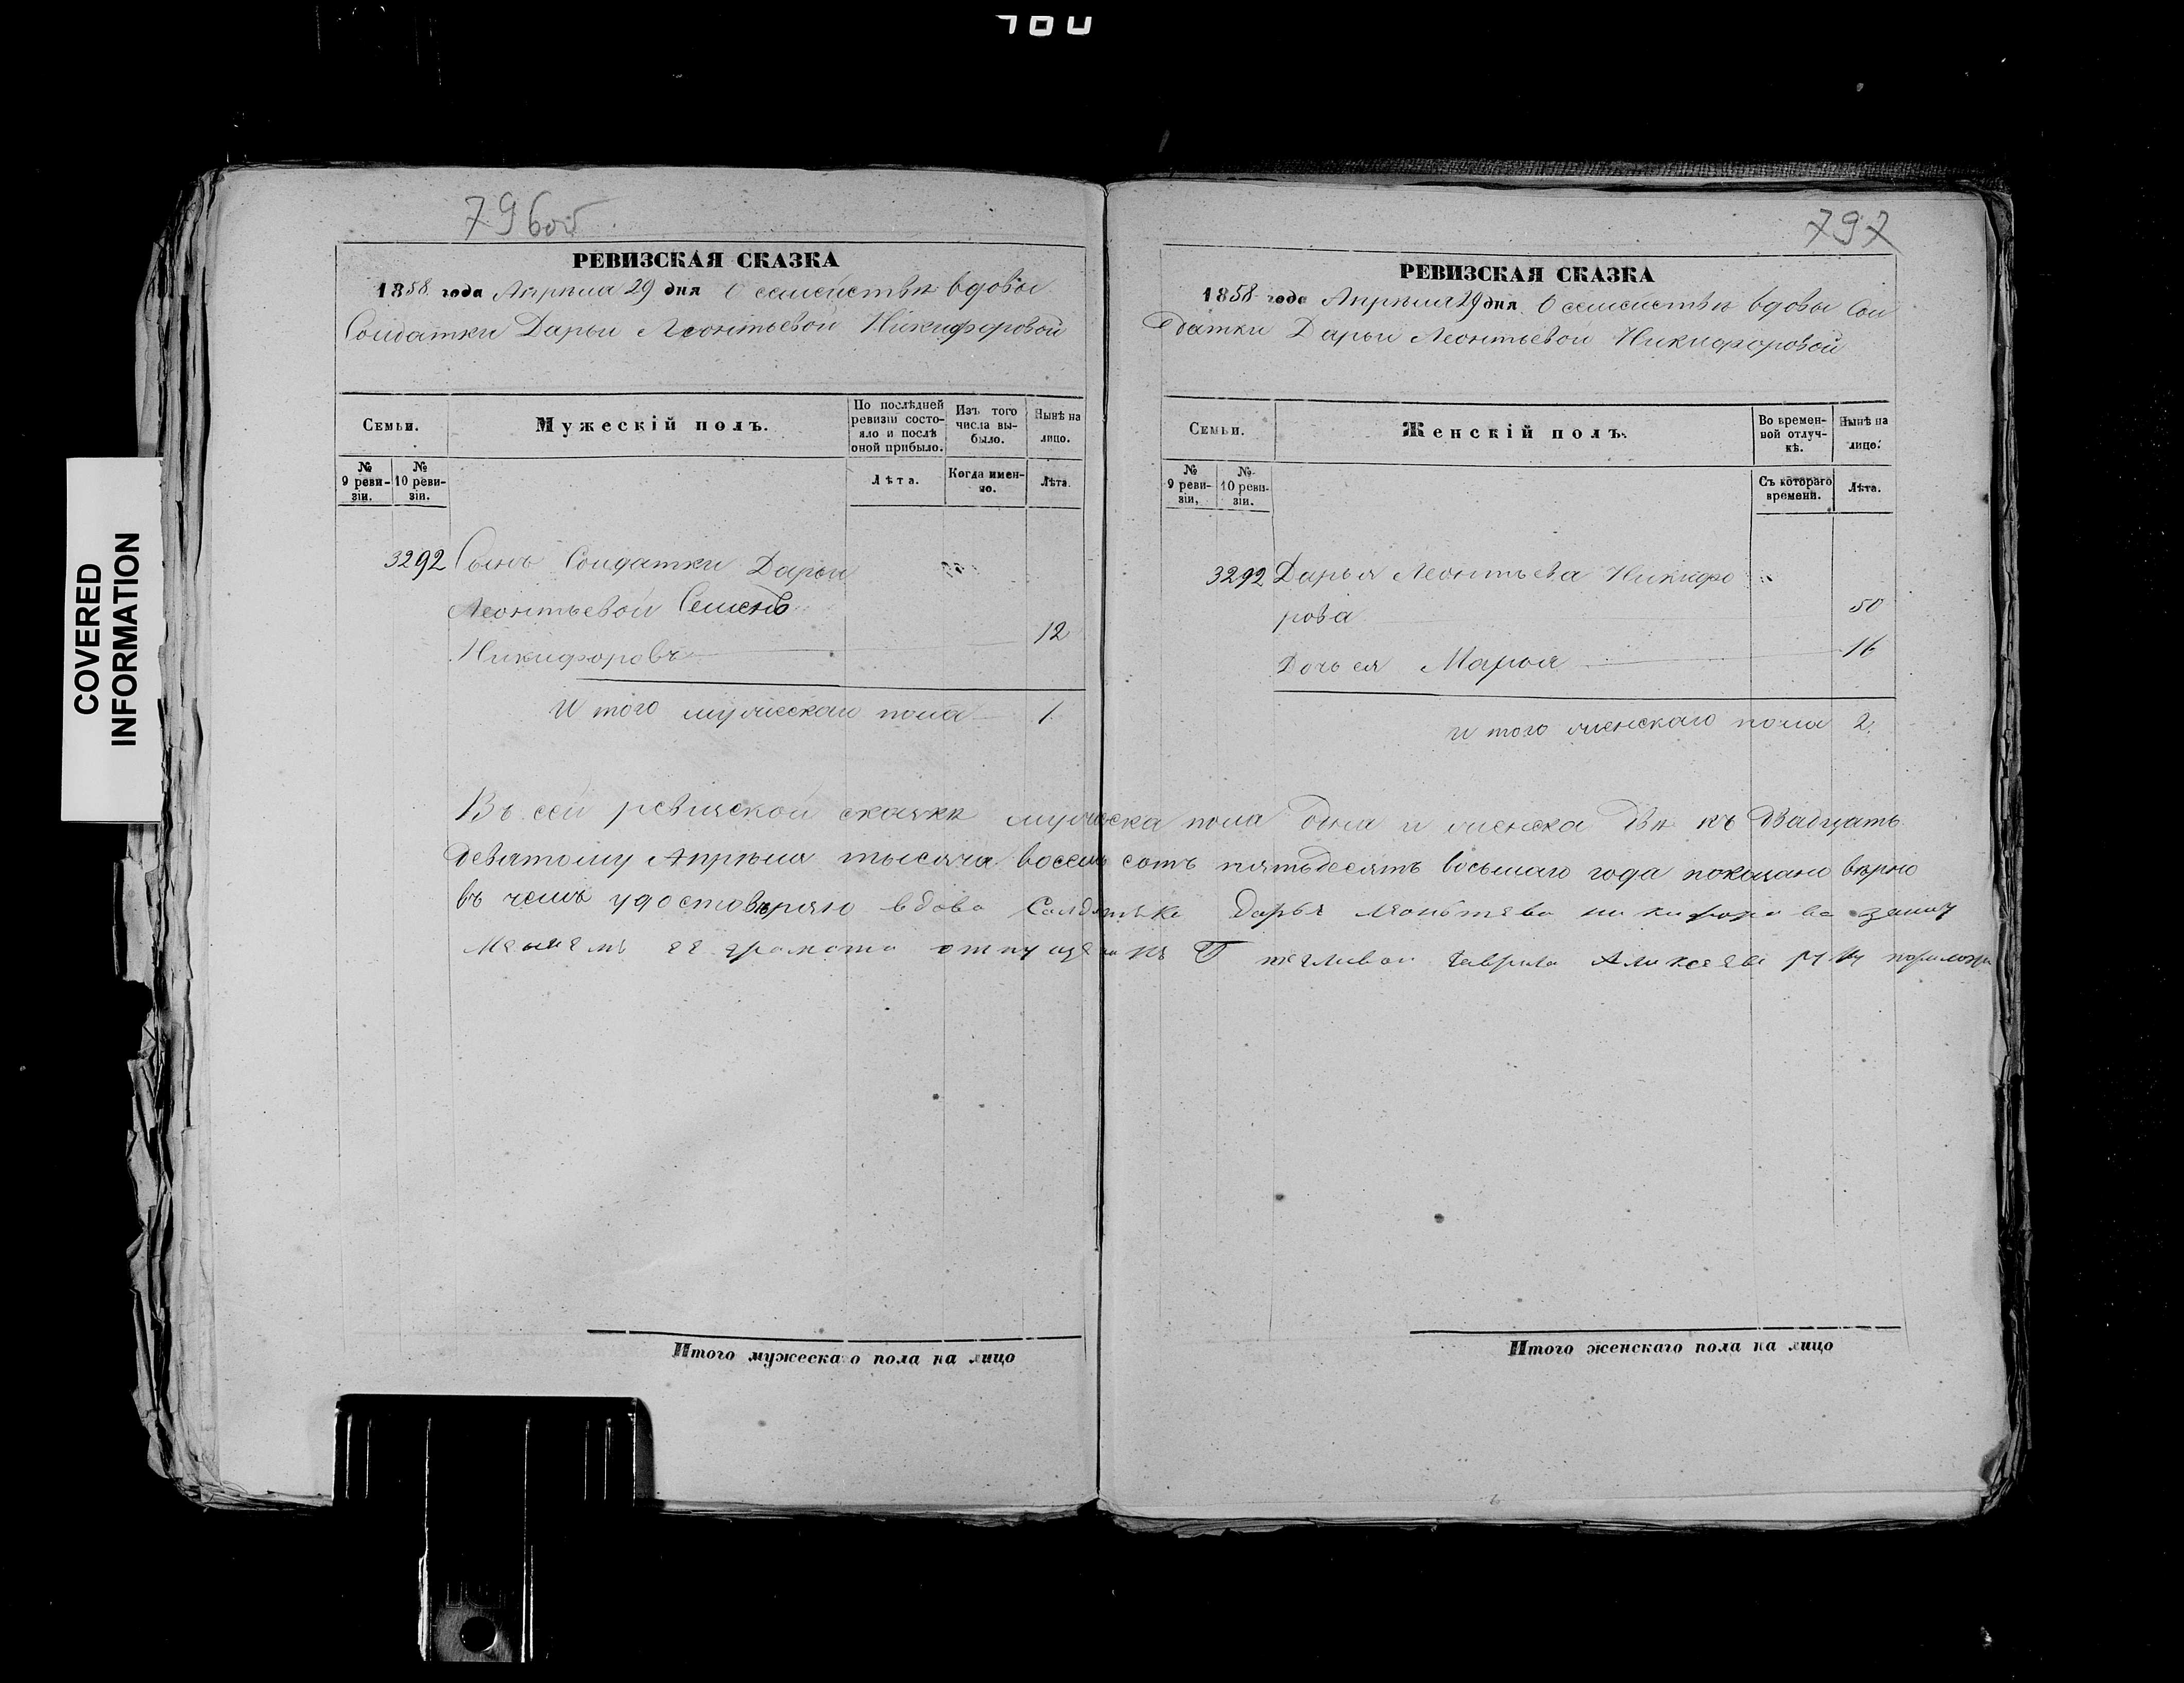 780
COVERED
INFORMATION
796об
РЕВИЗСКАЯ СКАЗКА
1858 года Апрѣля 29 дня О семействѣ вдовы
Солдатки Дарьи Леонтьевой Никифоровой
Семьи.
Мужескій полъ.
По послѣдней ревизіи состояло и послѣ оной прибыло.
Изъ того числа выбыло.
Нынѣ на лицо.
№ 9 ревизіи.
№ 10 ревизіи.
Лѣта.
Когда именно.
Лѣта.
3292 Сынъ Солдатки Дарьи
Леонтьевой Семенъ
Никифоровъ 12
И того мужескаго пола 1.
Итого мужескаго пола на лицо
797
РЕВИЗСКАЯ СКАЗКА
1858 года Апрѣля 29 дня О семействѣ вдовы Сол
датки Дарьи Леонтьевой Никифоровой
Семьи.
Женскій полъ.
Во временной отлучкѣ.
Нынѣ на лицо.
№ 9 ревизіи.
№ 10 ревизіи.
Съ котораго времени.
Лѣта.
3292 Дарья Леонтьева Никифо
рова 50
Дочь ея Марья 16
и того женскаго пола 2.
Въ сей ревизской сказкѣ мужеска пола одна и женска двѣ къ Двадцать
девятому Апрѣля тысяча восемь сотъ пятьдесятъ восьмаго года показано вѣрно
въ чемъ удостовѣряю вдова Салдатка Дарья
грамота Гаврила руку
Итого женскаго пола на лицо